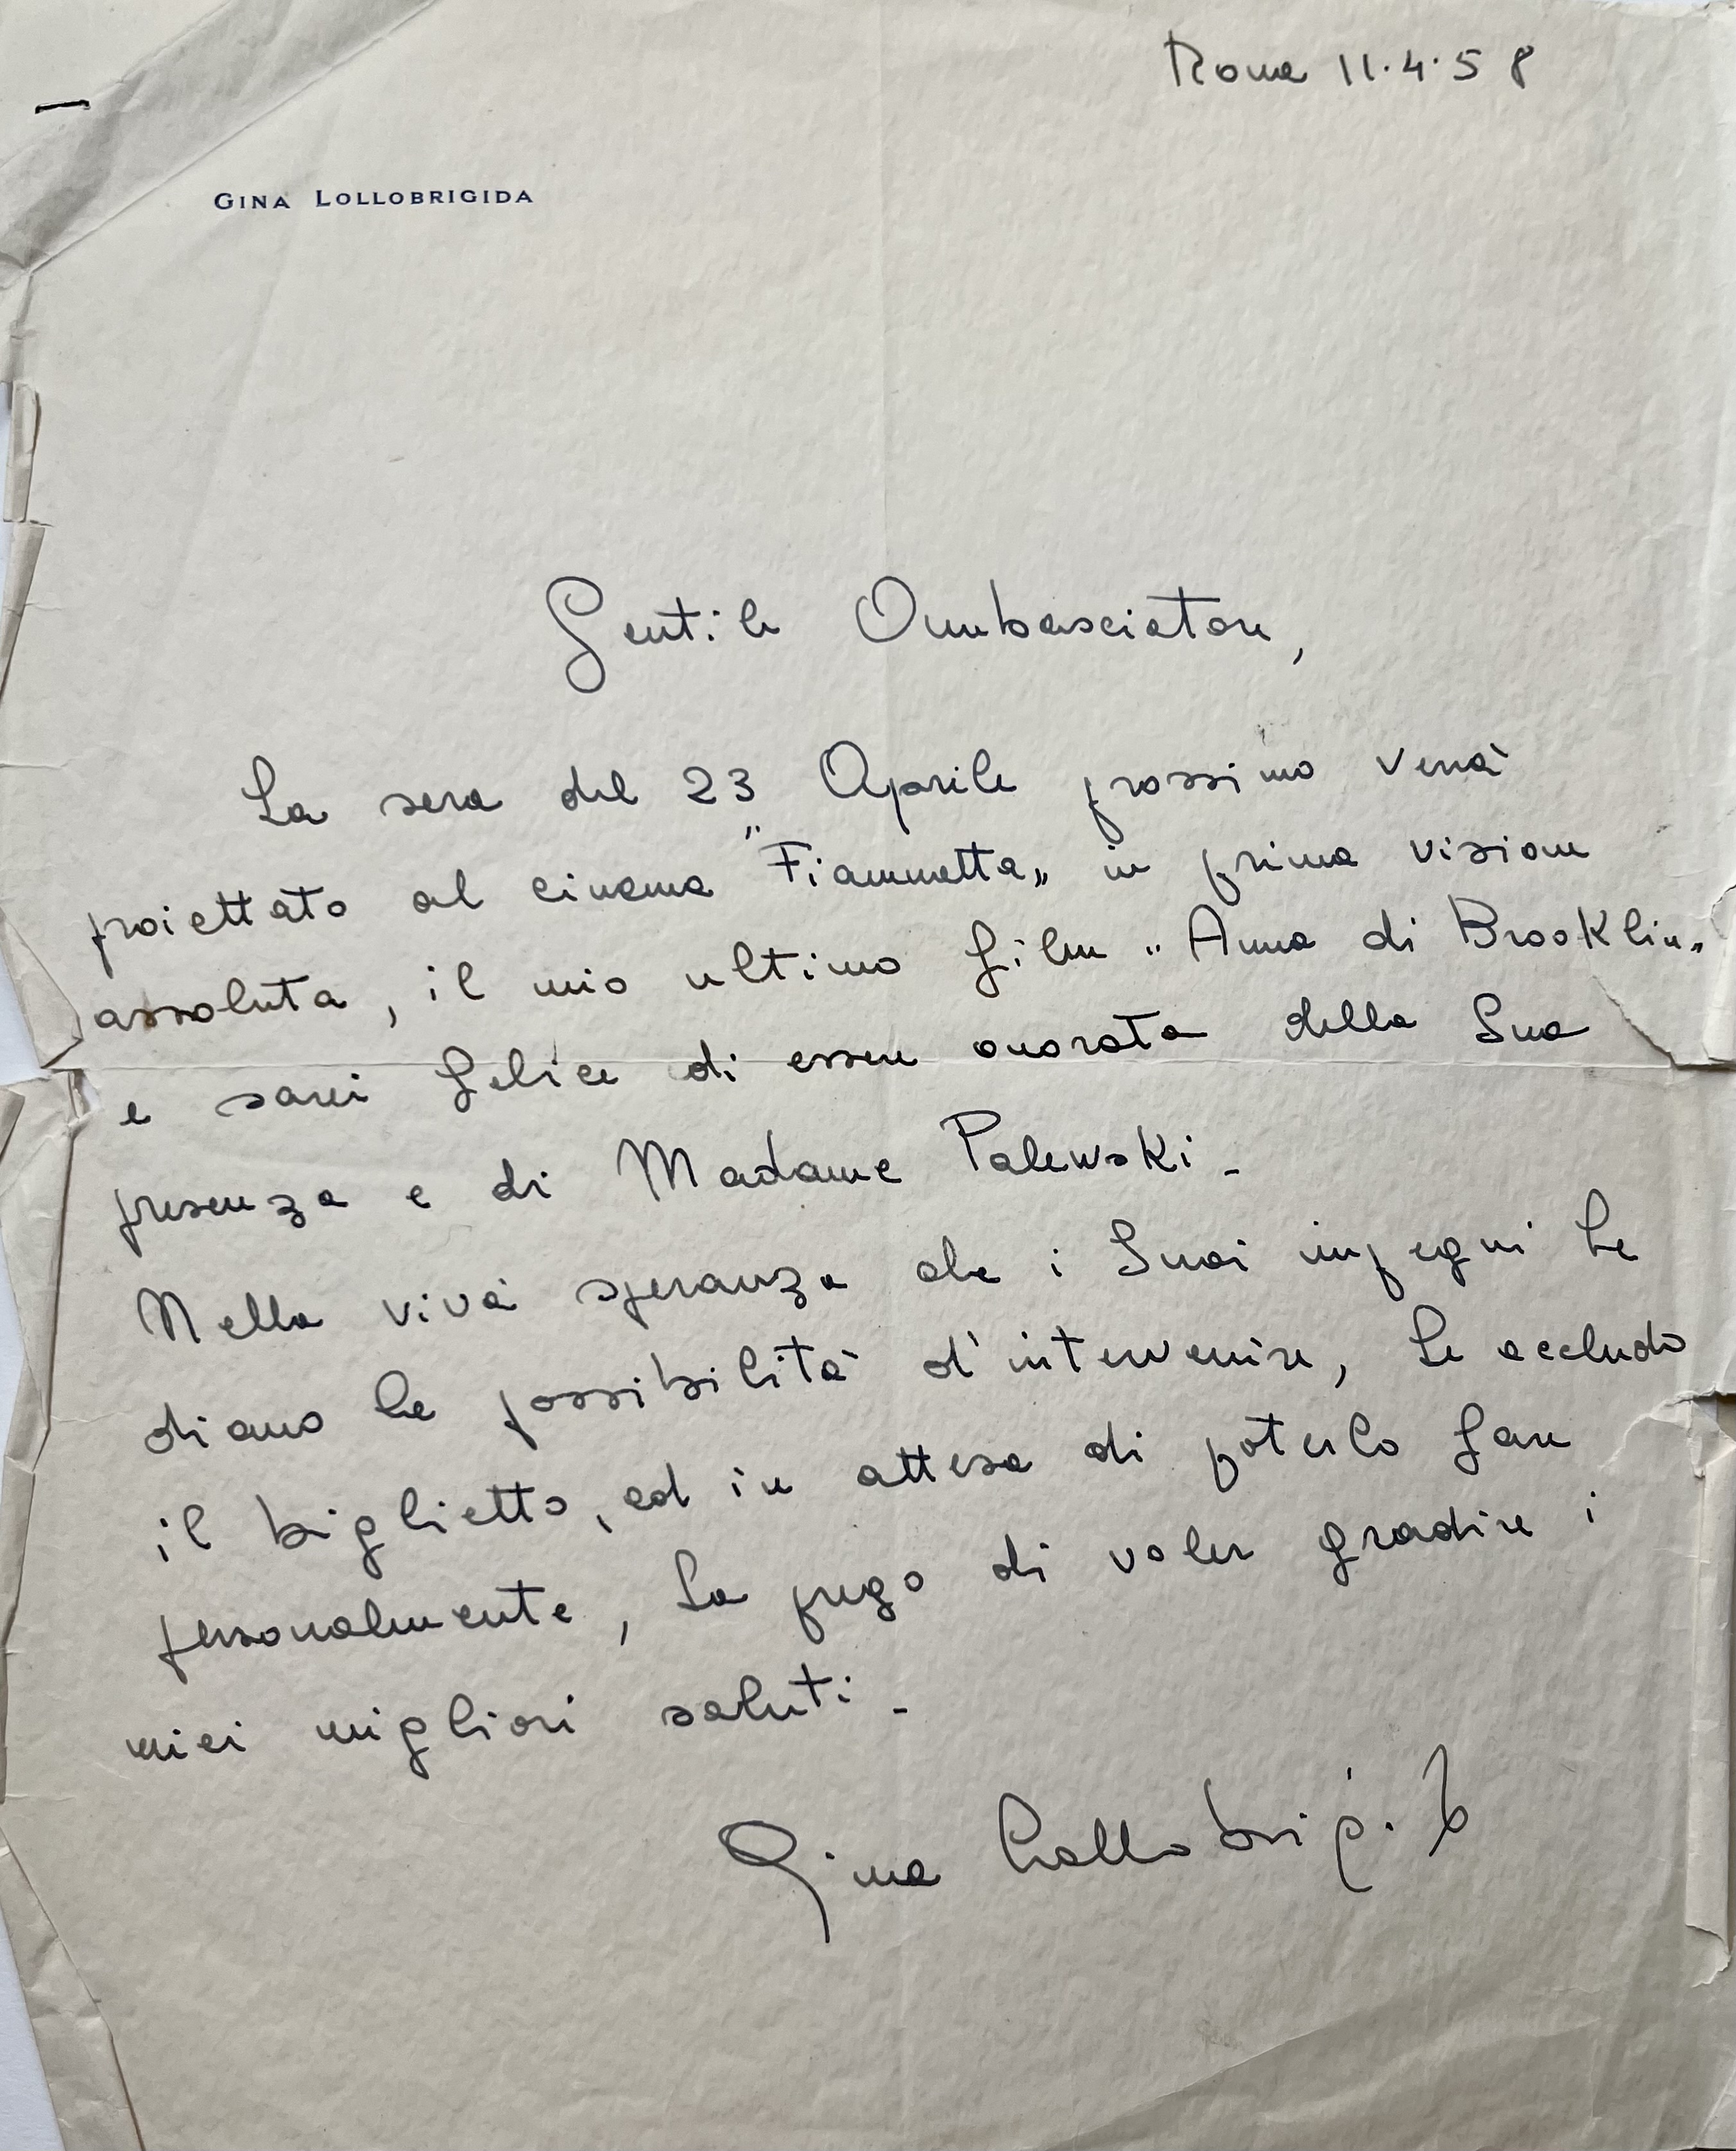 Roma 11.4.58
GINA LOLLOBRIGIDA
Gentile Ambasciatore,
La sera del 23 Aprile prossimo verrà
proiettato al cinema "Fiammetta„ in prima visione
assoluta, il mio ultimo film "Anna di Brooklin„
e sarei felice di essere onorata della Sua
presenza e di Madame Palewski -
Nella viva speranza che i Suoi impegni Le
diano la possibilità d'intervenire, Le accludo
il biglietto, ed in attesa di poterlo fare
personalmente, La prego di voler gradire i
miei migliori saluti -
Gina Lollobrigida